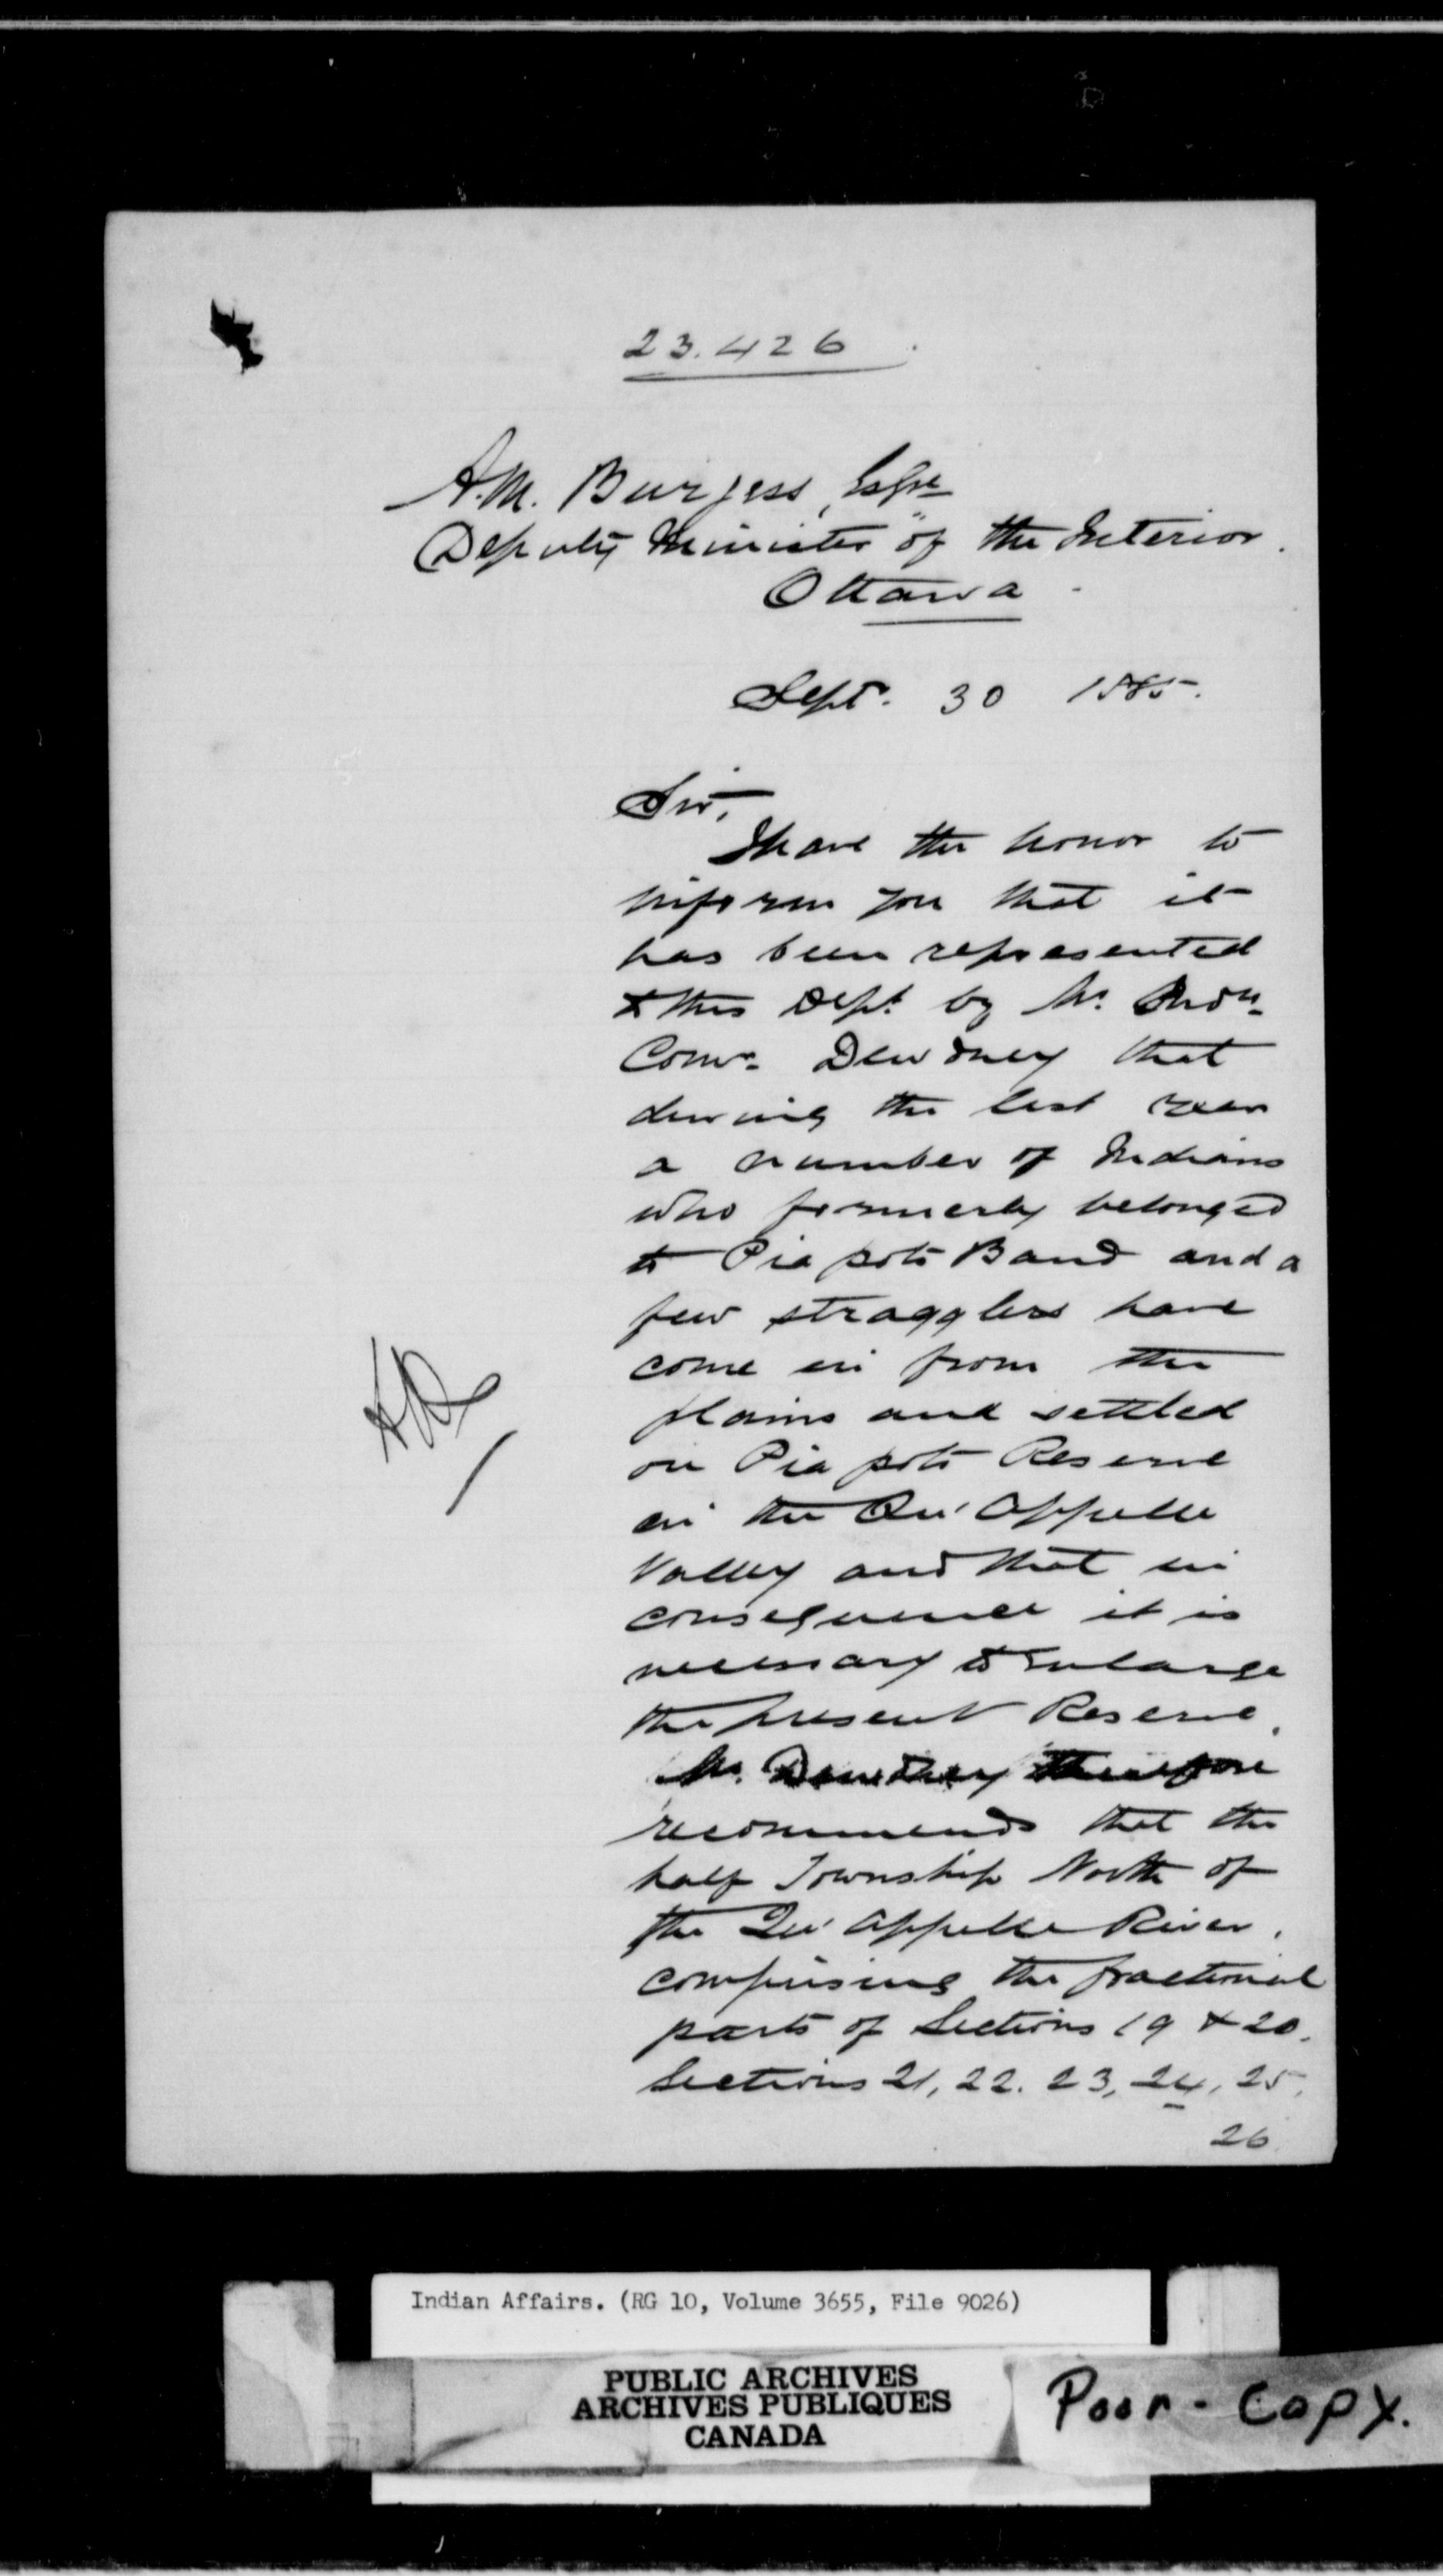 23.426
A.M. Burgess, Esqre
Deputy Minister of the Interior.
Ottawa
Sept. 30 1885.
Sir,
I have the honor to
inform you that it
has been represented
to this Dept. by Mr. Indn
Comr. Dewdney that
during the last year
a number of Indians
who formerly belonged
to Piapots Band and a
few stragglers have
come in from the
plains and settled
on Piapots Reserve
in the Qu'Appelle
Valley and that in
consequence it is
necessary to enlarge
the present Reserve.
Mr. Dewdney therefore
recommends that the
half Township North of
the Qu'Appelle River,
comprising the fractional
parts of Sections 19 & 20.
Sections 21, 22. 23, 24, 25,
26
Indian Affairs. (RG 10, Volume 3655, File 9026)
PUBLIC ARCHIVES
ARCHIVES PUBLIQUES
CANADA
Poor - Copy.